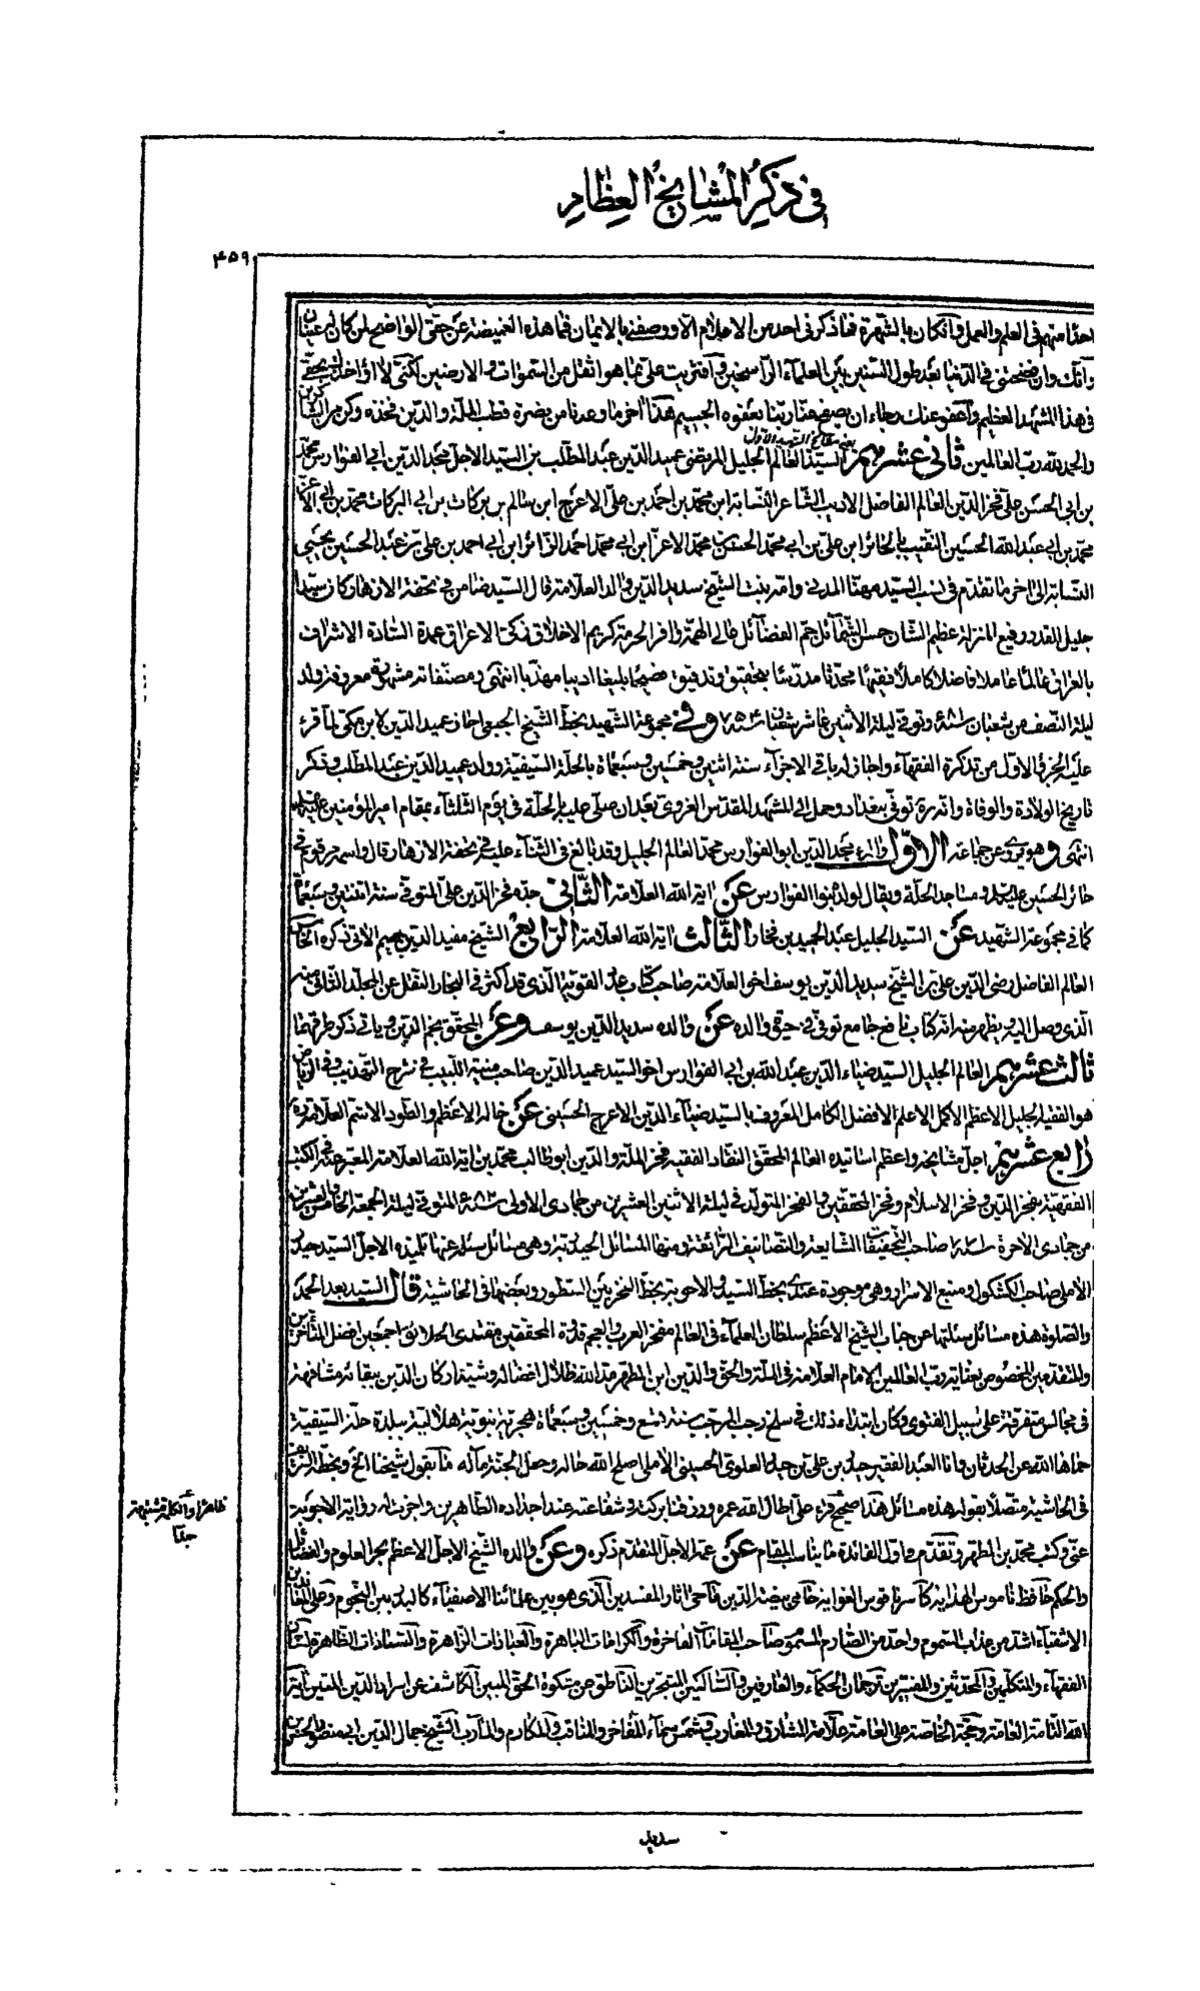 في ذكر المشايخ العظام
٤٥٩
احدا منهم في العلم والعمل وانكان بالشهرة فما ذكر في احد من الاعلام الا ووصفه بالايمان فما هذه الغميضة عن حقي الواضح لمن كان له عينان
وانك وان فضحتني في الدنيا بعد طول السنين بين العلماء الراسخين وافتريت علي بما هو اثقل من السموات والارضين لكني لا اؤاخذك بحقي
في هذا المشهد العظيم واعفو عنك رجاء ان يصفح عنا ربنا بعفوه الجسيم هذا اخر ما وعدنا من نصرة قطب الملة والدين فخذه وكن من الشاكرين
يعني مشايخ الشهيد الاول
والحمد لله رب العالمين ثاني عشرهم السيد العالم الجليل المرتضى عميد الدين عبد المطلب بن السيد الاجل مجد الدين ابي الفوارس محمد
بن ابي الحسن علي فخر الدين العالم الفاضل الاديب الشاعر النسابة ابن محمد بن احمد بن علي الاعرج ابن سالم بن بركات بن ابي البركات محمد بن ابي الاعز
محمد بن ابي عبد الله الحسين النقيب بالحائر ابن علي بن ابي محمد الحسن بن محمد الاعز ابن ابي محمد احمد الزائر ابن ابي احمد بن علي بن عبد الحسين بن يحيى
النسابة الى اخر ما تقدم في نسب السيد مهنا المدني وامه بنت الشيخ سديد الدين والد العلامة قال السيد ضامن في تحفة الازهار وكان سيدا
جليل القدر رفيع المنزلة عظيم الشان حسن الشمائل جم الفضائل عالي الهمة وافر الحرمة كريم الاخلاق زكي الاعراق عمدة السادة الاشراف
بالعراق عالما عاملا فاضلا كاملا فقيها محدثا مدرسا بتحقيق وتدقيق فصيحا بليغا اديبا مهذبا انتهى ومصنفاته مشهورة معروفة ولد
ليلة النصف من شعبان سنة ٦٨١ وتوفي ليلة الاثنين عاشر شعبان سنة ٧٥٤ وفي مجموعة الشهيد بخط الشيخ الجبعي اجاز عميد الدين لابن مكي لما قرء
عليه الجزء الاول من تذكرة الفقهاء واجاز له باقي الاجزاء سنة اثنين وخمسين وسبعماة بالحلة السيفية وولد عميد الدين عبد المطلب وذكر
تاريخ الولادة والوفاة وانه ره توفي ببغداد وحمل الى المشهد المقدس الغروي بعد ان صلي عليه بالحلة في يوم الثلثاء بمقام امير المؤمنين عليه السلم
انتهى وهو يروي عن جماعة الاول والده مجد الدين ابو الفوارس محمد العالم الجليل وقد بالغ في الثناء عليه في تحفة الازهار قال واسمه مرقوم في
حائر الحسين عليه السلام ومساجد الحلة ويقال لولده بنو الفوارس عن اية الله العلامة الثاني جده فخر الدين علي المتوفى سنة اثنتين وسبعماة
كما في مجموعة الشهيد عن السيد الجليل عبد الحميد بن فخار الثالث اية الله العلامة الرابع الشيخ مفيد الدين جهيم الاتي ذكره الخامس
العالم الفاضل رضي الدين علي بن الشيخ سديد الدين يوسف اخو العلامة صاحب كتاب عدد القوية الذي قد اكثر في البحار النقل عن المجلد الثاني منه
الذي وصل اليه ويظهر منه انه كتاب نافع جامع توفي في حيوة والده عن والده سديد الدين يوسف وعن المحقق نجم الدين وياتي ذكر طرقهما
ثالث عشرهم العالم الجليل السيد ضياء الدين عبد الله بن ابي الفوارس اخو السيد عميد الدين صاحب منية اللبيب في شرح التهذيب وفي الرياض
هو الفقيه الجليل الاعظم الاكمل الاعلم الافضل الكامل المعروف بالسيد ضياء الدين الاعرج الحسيني عن خاله الاعظم والطود الاشم العلامة ره
رابع عشرهم اجل مشايخه واعظم اساتيده العالم المحقق النقاد الفقيه فخر الملة والدين ابو طالب محمد بن اية الله العلامة المعبر عنه في الكتب
الفقهية بفخر الدين وفخر الاسلام وفخر المحققين والفخر المتولد في ليلة الاثنين العشرين من جمادى الاولى سنة ٦٨٢ المتوفى ليلة الجمعة الخامس والعشرين
من جمادى الاخرة سنة ٧٧١ صاحب التحقيقات الشايعة والتصانيف الرائقة ومنها المسائل الحيدرية وهي مسائل سئله عنها تلميذه الاجل السيد حيدر
الاملي صاحب الكشكول ومنبع الاسرار وهي موجودة عندي بخط السيد والاجوبة بخط الفخر بين السطور وبعضها في الحاشية قال السيد بعد الحمد
والصلوة هذه مسائل سئلتها عن جناب الشيخ الاعظم سلطان العلماء في العالم مفخر العرب والعجم قدوة المحققين مقتدى الخلائق اجمعين افضل المتاخرين
والمتقدمين المخصوص بعناية رب العالمين الامام العلامة في الملة والحق والدين ابن المطهر مد الله ظلال افضاله وشيد اركان الدين ببقائه مشافهة
في مجالس متفرقة على سبيل الفتوى وكان ابتداء ذلك في سلخ رجب المرجب سنة تسع وخمسين وسبعماة هجرية نبوية هلالية ببلدة حلة السيفية
حماها الله عن الحدثان وانا العبد الفقير حيدر بن علي بن حيدر العلوي الحسيني الاملي اصلح الله حاله وجعل الجنة مآله ما يقول شيخنا الخ وبخطه الشريف
في الحاشية متصلا بقوله هذه مسائل هذا صحيح قرء علي اطال الله عمره ورزقنا بركته وشفاعته عند اجداده الطاهرين واجزت له رواية الاجوبة
عني وكتب محمد بن المطهر وتقدم في اول الفائدة ما يناسب المقام عن عمه الاجل المتقدم ذكره وعن والده الشيخ الاجل الاعظم بحر العلوم والفضائل
والحكم حافظ ناموس الهداية كاسر ناقوس الغواية حامي بيضة الدين ماحي اثار المفسدين الذي هو بين علمائنا الاصفياء كالبدر بين النجوم وعلى المعاندين
الاشقياء اشد من عذاب السموم واحد من الصارم المسموم صاحب المقامات الفاخرة والكرامات الباهرة والعبادات الزاهرة والسعادات الظاهرة لسان
الفقهاء والمتكلمين والمحدثين والمفسرين ترجمان الحكماء والعارفين والسالكين المتبحرين الناطق عن مشكوة الحق المبين الكاشف عن اسرار الدين المتين اية
الله التامة العامة وحجة الخاصة على العامة علامة المشارق والمغارب وشمس سماء المفاخر والمناقب والمكارم والمارب الشيخ جمال الدين ابي منصور الحسن بن
ظاهرا والكلمة مشتبهة
جدا
سديد